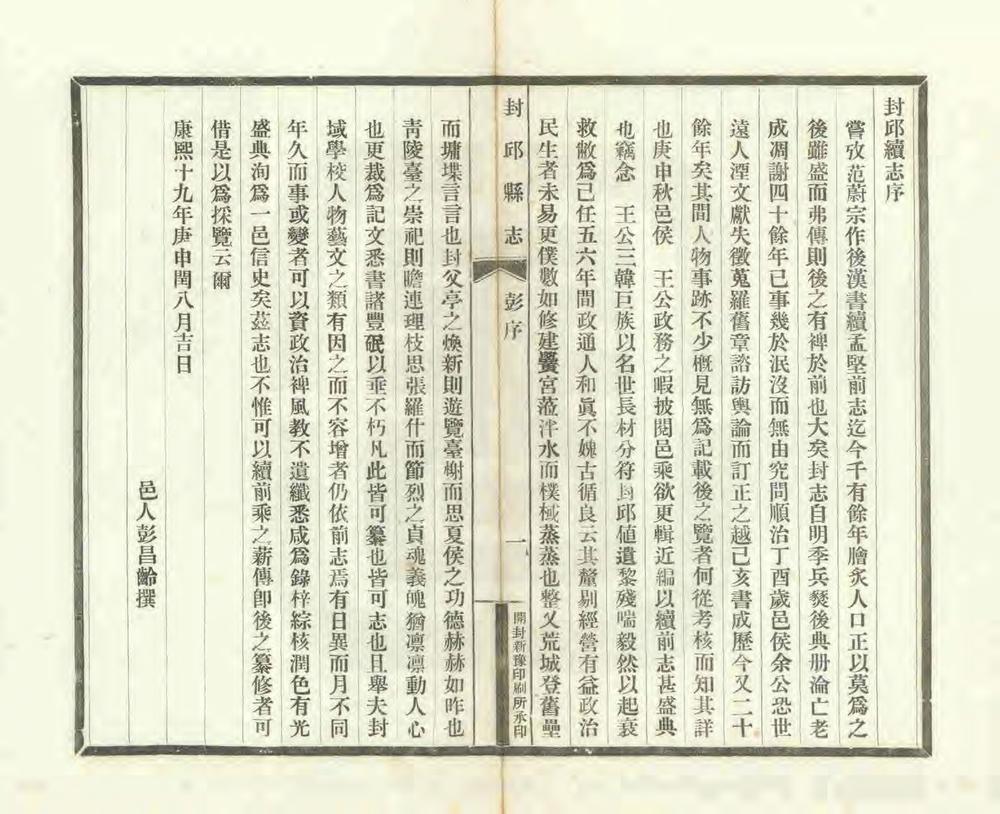 封邱續志序
嘗攷范蔚宗作後漢書續孟堅前志迄今千有餘年膾炙人口正以莫爲之
後雖盛而弗傳則後之有裨於前也大矣封志自明季兵燹後典册淪亡老
成凋謝四十餘年已事幾於泯沒而無由究問順治丁酉歲邑侯余公恐世
遠人湮文獻失徵蒐羅舊章諮訪輿論而訂正之越己亥書成歷今又二十
餘年矣其間人物事跡不少概見無爲記載後之覽者何從考核而知其詳
也庚申秋邑侯 王公政務之暇披閱邑乘欲更輯近編以續前志甚盛典
也竊念 王公三韓巨族以名世長材分符封邱値遺黎殘喘毅然以起衰
救敝爲己任五六年間政通人和眞不媿古循良云其釐剔經營有益政治
民生者未易更僕數如修建黌宮蒞泮水而樸棫蒸蒸也整乂荒城登舊壘
封邱縣志 彭序 一 開封新豫印刷所承印
而墉堞言言也封父亭之煥新則遊覽臺榭而思夏侯之功德赫赫如昨也
靑陵臺之崇祀則瞻連理枝思張羅什而節烈之貞魂義魄猶凛凛動人心
也更裁爲記文悉書諸豐碾以垂不朽凡此皆可纂也皆可志也且舉夫封
域學校人物藝文之類有因之而不容增者仍依前志焉有日異而月不同
年久而事或變者可以資政治裨風教不遺纖悉咸爲錄梓綜核潤色有光
盛典洵爲一邑信史矣茲志也不惟可以續前乘之薪傳卽後之纂修者可
借是以爲採覽云爾
康熙十九年庚申閏八月吉日
邑人彭昌齡撰